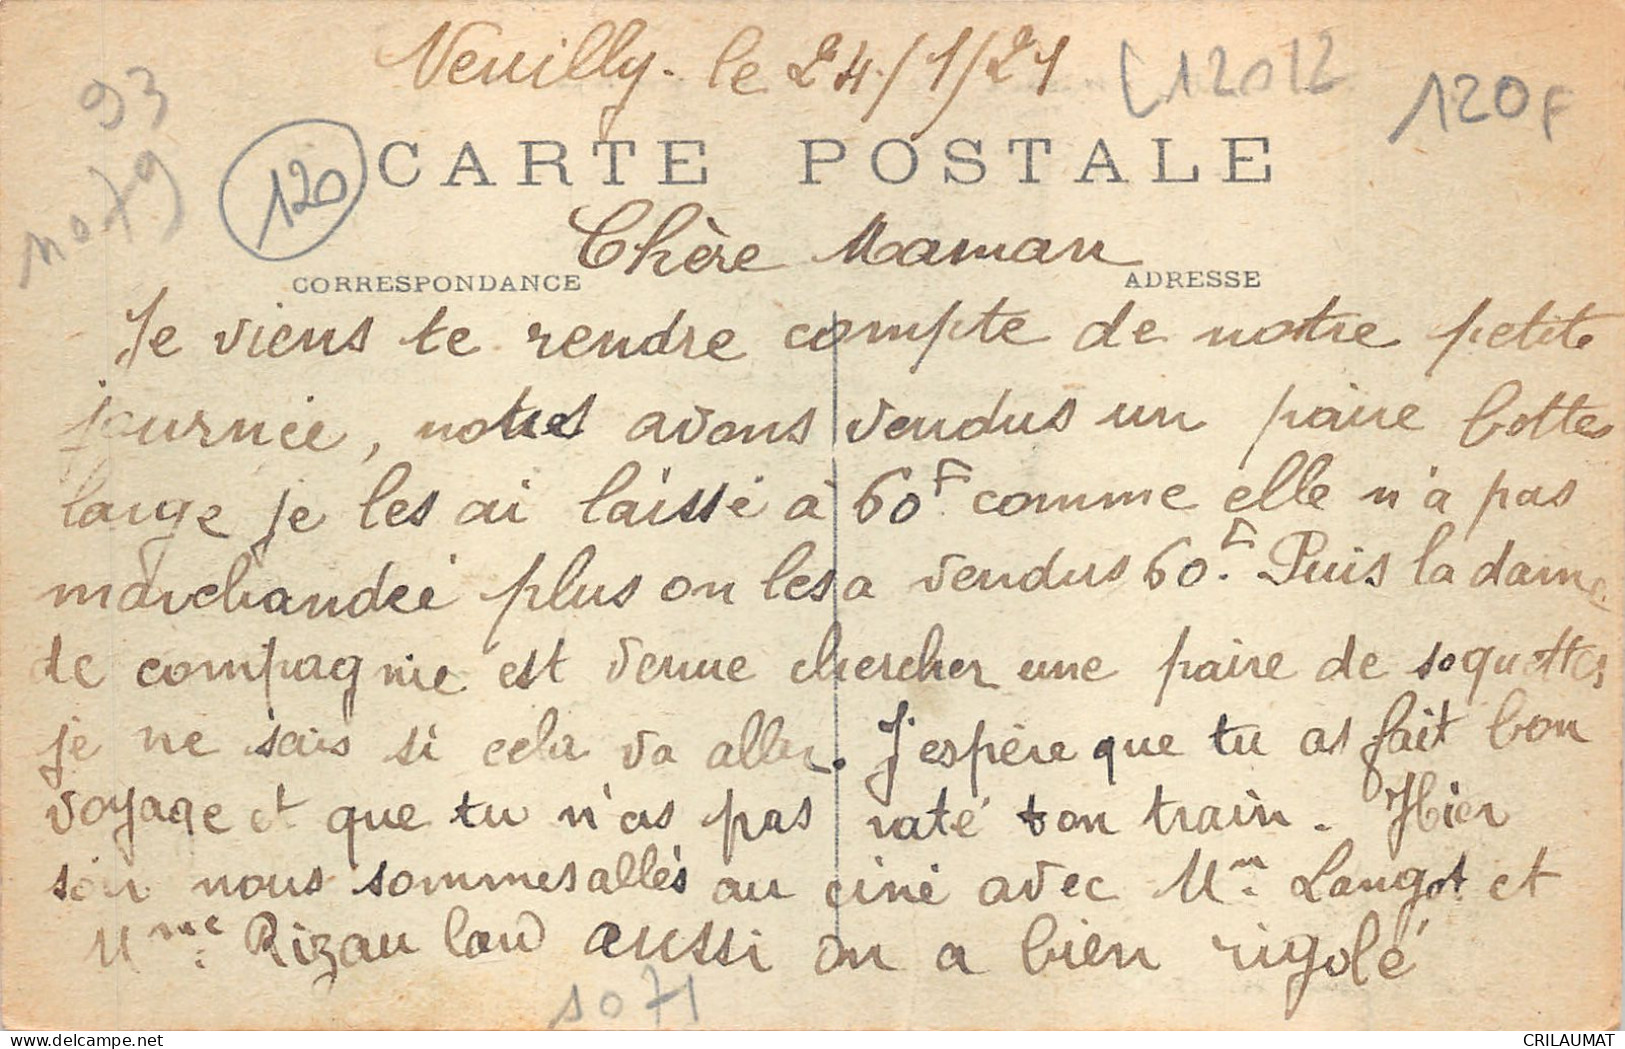 Neuilly. le 24/1/21
[12012
120F
93
1079
120
CARTE POSTALE
Chère Maman
CORRESPONDANCE
ADRESSE
Je viens te rendre compte de notre petite
journée, nous avons vendus un paire bottes
large je les ai laissé à 60F comme elle n'a pas
marchandée plus on les a vendus 60F. Puis la dame
de compagnie est venue chercher une paire de soquettes
je ne sais si cela va aller. J'espère que tu as fait bon
voyage et que tu n'as pas raté ton train. Hier
soir nous sommes allés au ciné avec Mm. Langot et
Mme. Rizau aussi on a bien rigolé
1071
CRILAUMAT